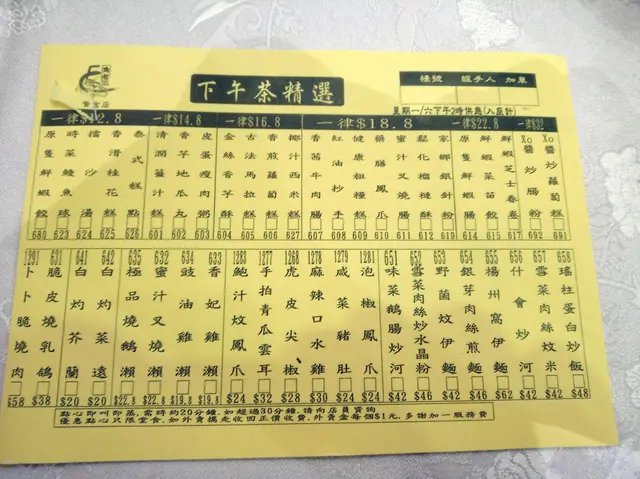 下午茶精選
檯號 經手人 加單
星期一/六下午2時供應(入座計)
一律$12.8
原隻鮮蝦餃 680
時菜鯪魚球 623
擂沙湯 623
香滑桂花糕 625
泰式糕點 626
一律$14.8
清潤薑汁糕 601
香芋地瓜丸 602
皮蛋瘦肉粥 603
一律$18.8
金絲香芋酥 604
古法馬拉糕 605
香煎蘿蔔糕 606
椰汁西米糕 627
香茜牛肉腸 607
紅油抄手 608
健康粗糧 609
藥膳鳳爪 610
蜜汁叉燒腸 611
鬆化榴槤酥 612
家鄉銀針粉 619
一律$22.8
鮮蝦菜苗餃 610
鮮蝦芝士春卷 617
一律$32
XO醬炒腸粉 692
XO醬炒蘿蔔糕 691
1291 卜卜脆燒肉 $58
631 脆皮燒乳鴿 $38
641 白灼芥蘭 $20
642 白灼菜遠 $20
635 極品燒鵝瀨 $22.8
632 蜜汁叉燒瀨 $22.8
634 豉油雞瀨 $19.8
633 香妃雞瀨 $19.8
1283 鮑汁炆鳳爪 $24
1277 手拍青瓜雲耳 $32
1268 虎皮尖椒 $28
1278 麻辣口水雞 $30
1279 咸菜豬肚 $24
1241 泡椒鳳爪 $24
651 味菜鵝腸炒河 $42
652 雪菜肉絲炒水晶粉 $46
653 野菌炆伊麵 $42
654 銀芽肉絲煎麵 $42
655 楊州窩伊麵 $46
656 什會炒河 $62
657 雪菜肉絲炆米 $42
658 瑤柱蛋白炒飯 $48
點心即叫即蒸,需時約20分鐘,如超過30分鐘,請向店員查詢
優惠點心只限堂食,如外賣攜走收回正價收費,外賣盒每個$1元,多謝加一服務費